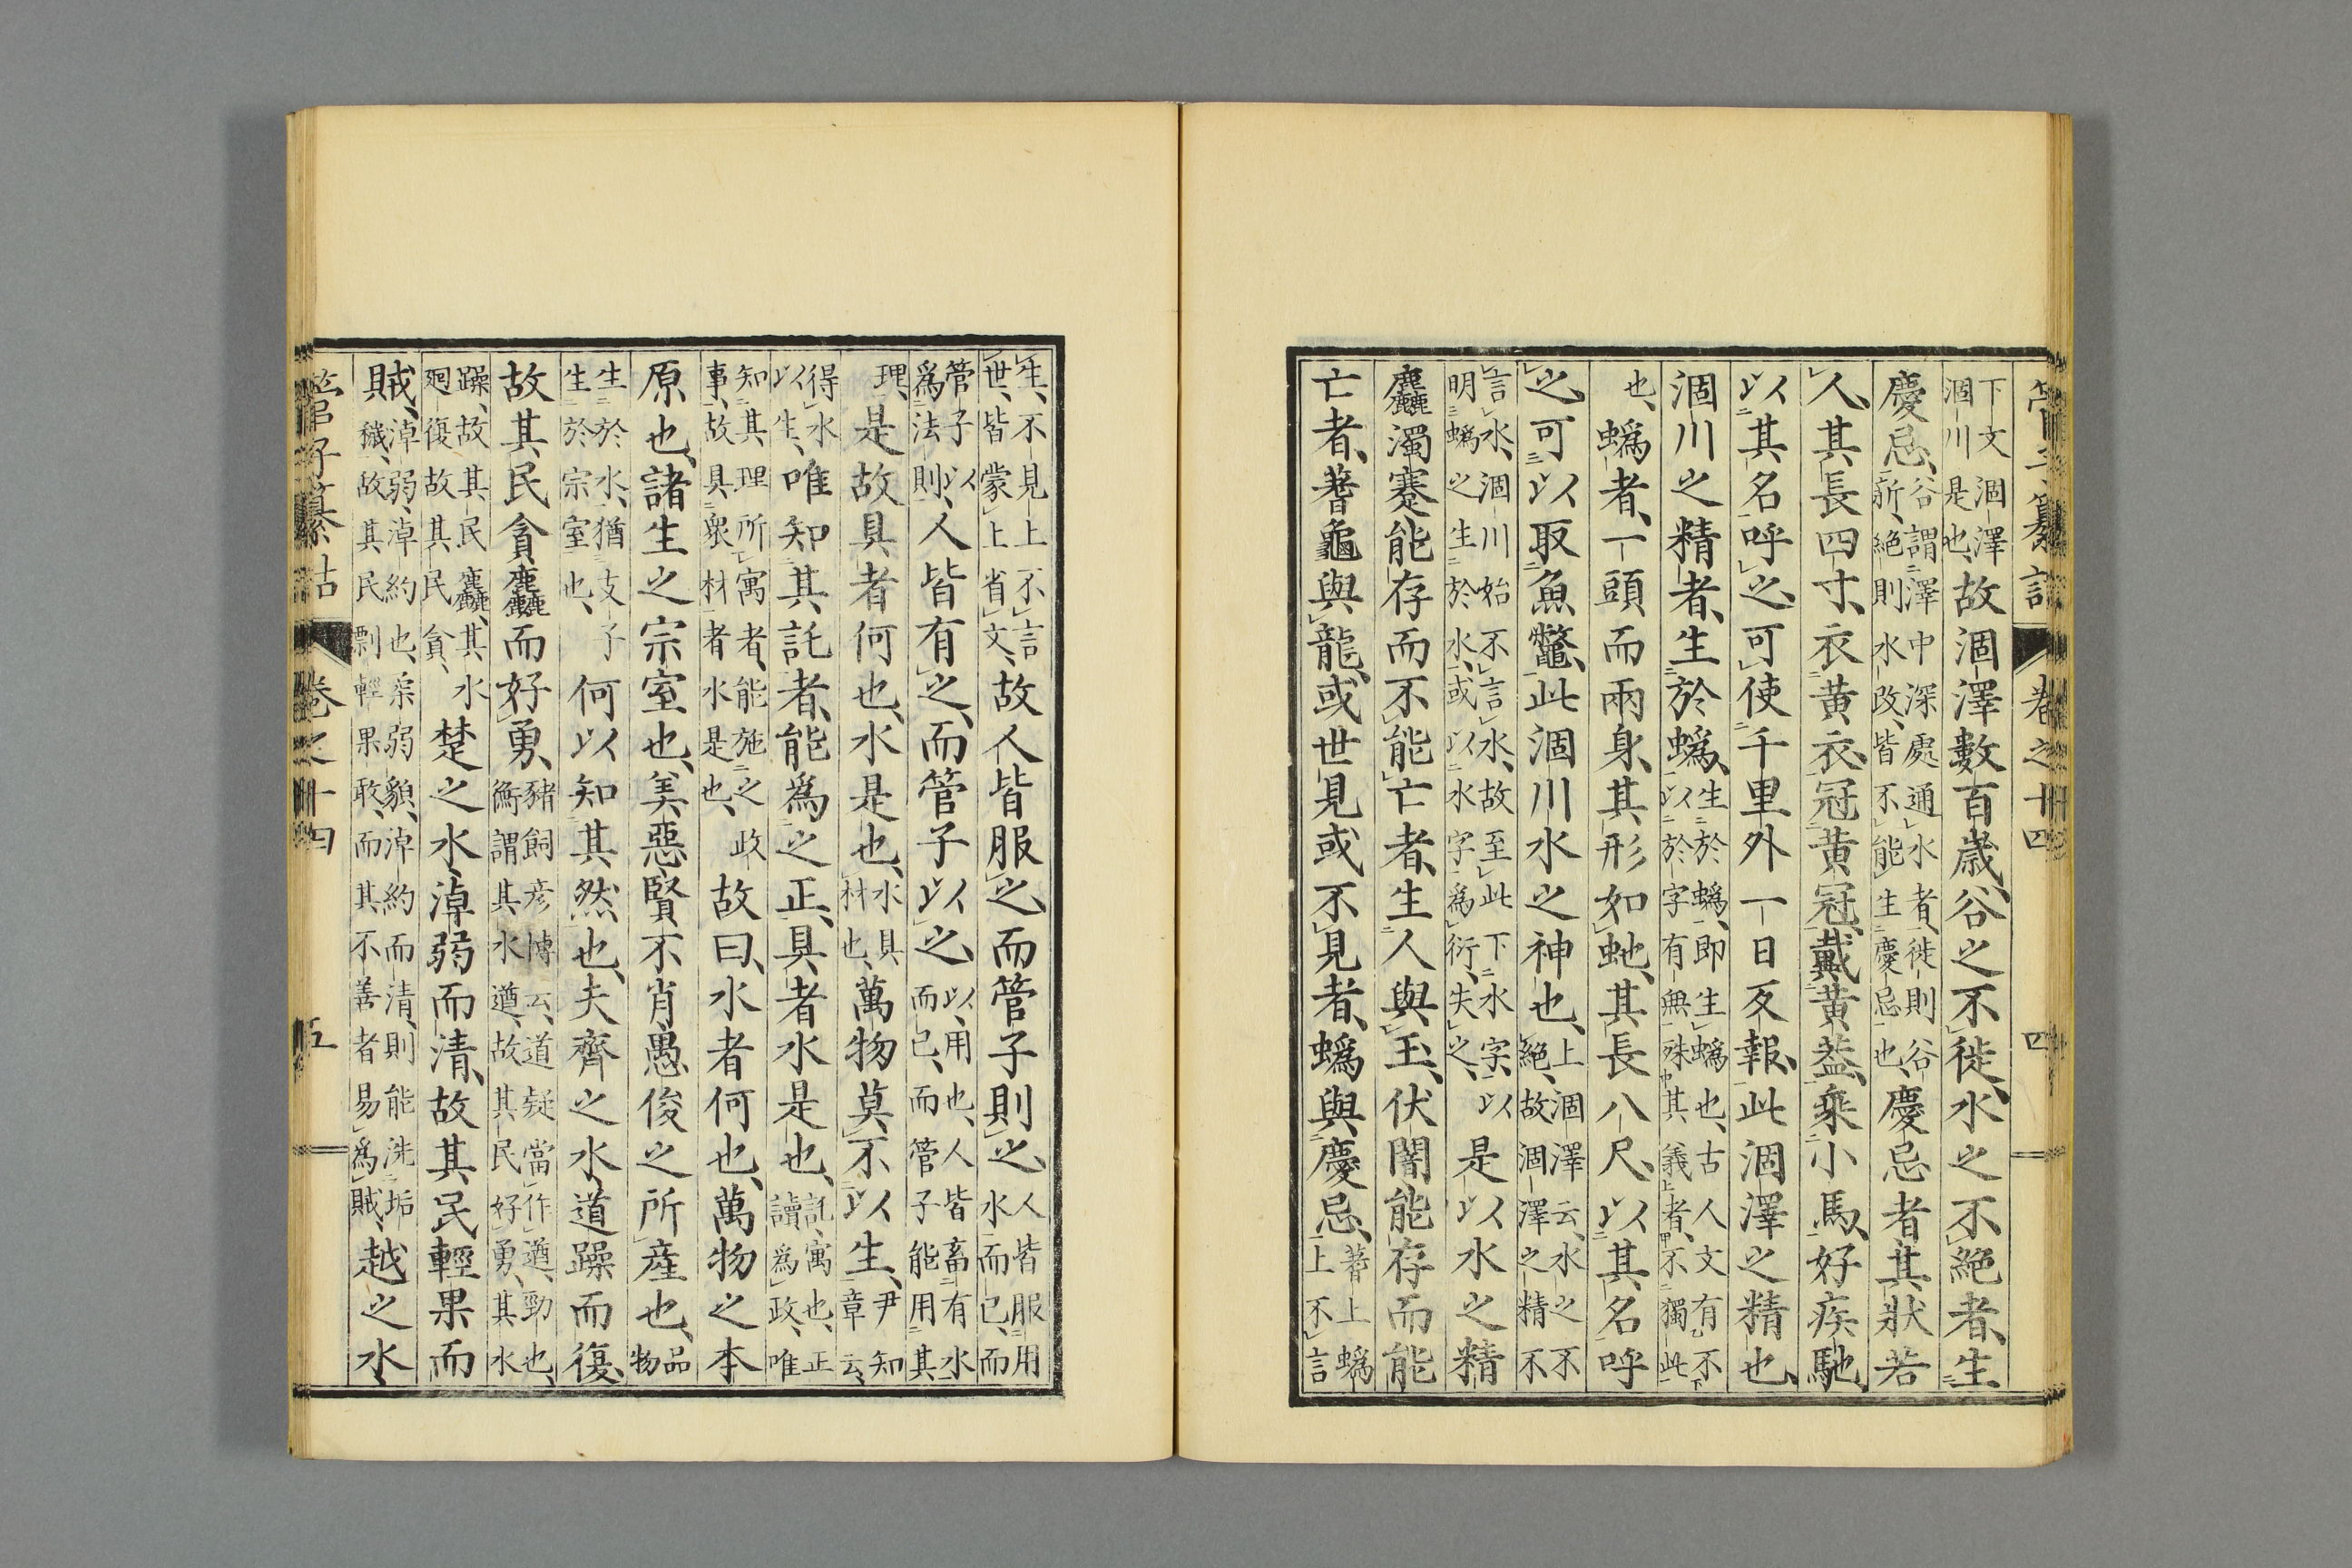 管子纂詁　卷之十四　四
下文涸澤涸川是也、故涸澤數百歲、谷之不徙、水之不絕者、生
慶忌、谷謂澤中深處通水者、徙則谷新、絕則水改、皆不能生慶忌也、慶忌者、其狀若
人、其長四寸、衣黃衣、冠黃冠、戴黃蓋、乘小馬、好疾馳、
以其名呼之、可使千里外一日反報、此涸澤之精也、
涸川之精者、生於蟡、生於蟡、即生蟡也、古人文有不以於字有無殊其義者、不獨此
也、蟡者、一頭而兩身、其形如虵、其長八尺、以其名呼
之、可以取魚鼈、此涸川水之神也、上涸澤云、水之不絕、故涸澤之精不
言水、涸川始不言水、故至此下水字、以明蟡之生於水、或以水字爲衍、失之、是以水之精
麤濁蹇、能存而不能亡者、生人與玉、伏闇能存而能
亡者、蓍龜與龍、或世見或不見者、蟡與慶忌、蓍上蟡上不言
生、不見上不言世、皆蒙上省文、故人皆服之、而管子則之、人皆服用水而已、而
管子以爲法則、人皆有之、而管子以之、以、用也、人皆畜有水而已、而管子能用其
理、是故具者何也、水是也、水具材也、萬物莫不以生、尹知章云、
得水以生、唯知其託者、能爲之正、具者水是也、託、寓也、正讀爲政、唯
知其理所寓者、能施之政事、故具衆材者水是也、故曰、水者何也、萬物之本
原也、諸生之宗室也、美惡賢不肖愚俊之所產也、品物
生於水、猶支子生於宗室也、何以知其然也、夫齊之水、道躁而復、
故其民貪麤而好勇、豬飼彥博云、道疑當作遒、遒、勁也、衡謂其水遒、故其民好勇、其水
躁、故其民麤、其水廻復、故其民貪、楚之水、淖弱而清、故其民輕果而
賊、淖弱、淖約也、柔弱貌、淖約而清、則能洗垢穢、故其民剽輕果敢、而其不善者易爲賊、越之水、
管子纂詁　卷之十四　五